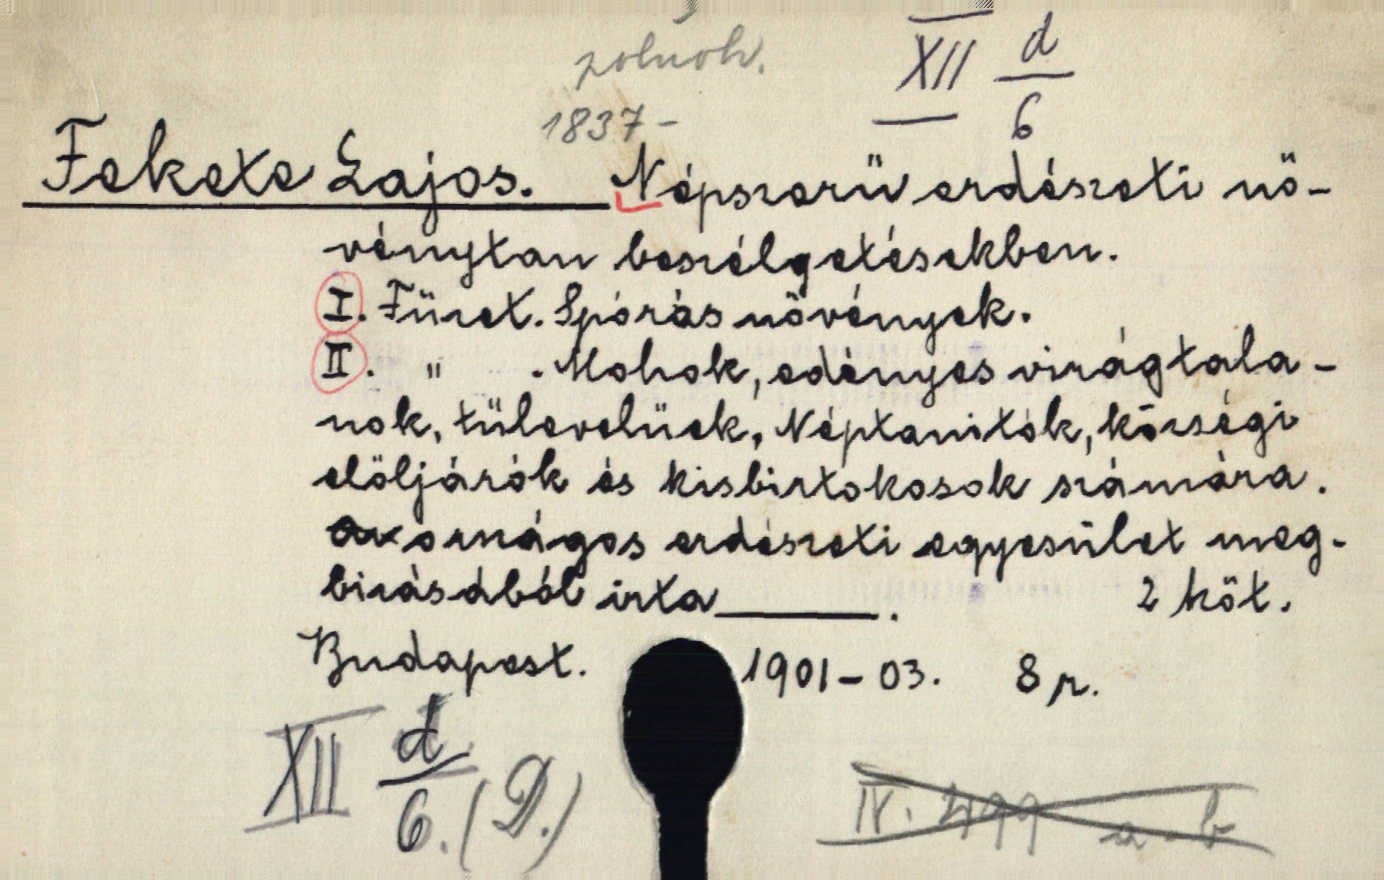 XII d/6
1837-
Fekete Lajos. Népszerü erdészeti nö-
vénytan beszélgetésekben.
I. Füzet. Spórás növények.
II. " . Mohok, edényes virágtala-
nok, tülevelüek, Néptanitók, községi
elöljárók és kisbirtokosok számára.
országos erdészeti egyesület meg-
bizásából irta ______. 2 köt.
Budapest. 1901-03. 8 r.
XII d/6. (D.)
IV. 499 a-b